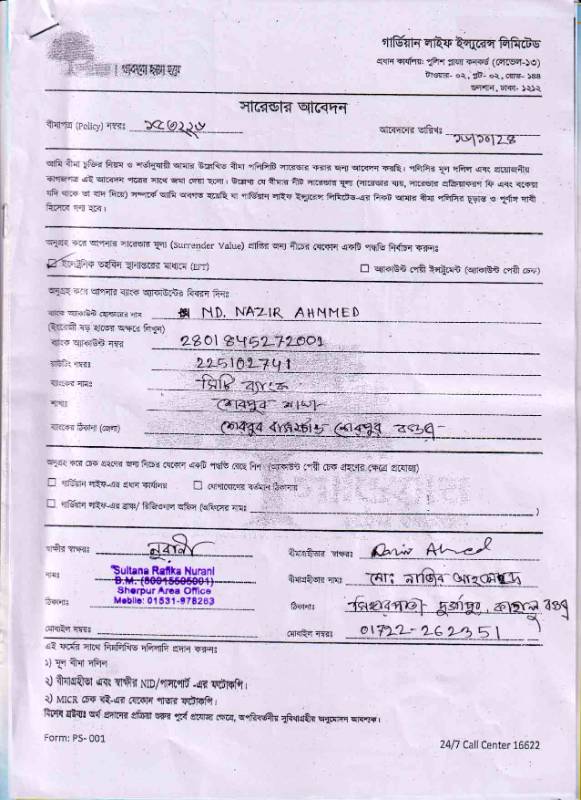 গার্ডিয়ান লাইফ ইন্স্যুরেন্স লিমিটেড
প্রধান কার্যালয়: পুলিশ প্লাজা কনকর্ড (লেভেল-১৩)
টাওয়ার- ০২, প্লট- ০২, রোড- ১৪৪
গুলশান, ঢাকা- ১২১২
সারেন্ডার আবেদন
বীমাপত্র (Policy) নম্বরঃ
আবেদনের তারিখঃ ১৬/১০/২৪
আমি বীমা চুক্তির নিয়ম ও শর্তানুযায়ী আমার উল্লেখিত বীমা পলিসিটি সারেন্ডার করার জন্য আবেদন করছি। পলিসির মূল দলিল এবং প্রয়োজনীয়
কাগজপত্র এই আবেদন পত্রের সাথে জমা দেয়া হলো। উল্লেখ্য যে বীমার নীট সারেন্ডার মূল্য (সারেন্ডার ব্যয়, সারেন্ডার প্রক্রিয়াকরণ ফি এবং বকেয়া
যদি থাকে তা বাদ দিয়ে) সম্পর্কে আমি অবগত হয়েছি যা গার্ডিয়ান লাইফ ইন্স্যুরেন্স লিমিটেড-এর নিকট আমার বীমা পলিসির চূড়ান্ত ও পূর্ণাঙ্গ দাবী
হিসেবে গণ্য হবে।
অনুগ্রহ করে আপনার সারেন্ডার মূল্য (Surrender Value) প্রাপ্তির জন্য নীচের যেকোন একটি পদ্ধতি নির্বাচন করুনঃ
ইলেক্ট্রনিক তহবিল স্থানান্তরের মাধ্যমে (EFT)
অ্যাকাউন্ট পেয়ী ইন্সট্রুমেন্ট (অ্যাকাউন্ট পেয়ী চেক)
অনুগ্রহ করে আপনার ব্যাংক অ্যাকাউন্টের বিবরণ দিনঃ
ব্যাংক অ্যাকাউন্ট হোল্ডারের নাম MD. NAZIR AHMMED
(ইংরেজী বড় হাতের অক্ষরে লিখুন)
ব্যাংক অ্যাকাউন্ট নম্বর 2801845272001
রাউটিং নম্বরঃ 225102741
ব্যাংকের নামঃ সিটি ব্যাংক
শাখাঃ শেরপুর শাখা
ব্যাংকের ঠিকানা (জেলা) শেরপুর শেরপুর বগুড়া
অনুগ্রহ করে চেক গ্রহণের জন্য নিচের যেকোন একটি পদ্ধতি বেছে নিন (অ্যাকাউন্ট পেয়ী চেক গ্রহণের ক্ষেত্রে প্রযোজ্য)
গার্ডিয়ান লাইফ-এর প্রধান কার্যালয়
যোগাযোগের বর্তমান ঠিকানায়
গার্ডিয়ান লাইফ-এর ব্রাঞ্চ/ রিজিওনাল অফিস (অফিসের নামঃ )
স্বাক্ষীর স্বাক্ষরঃ নুরানী
বীমাগ্রহীতার স্বাক্ষরঃ
নামঃ Sultana Rafika Nurani
B.M. (80015505001)
Sherpur Area Office
Mobile: 01531-978263
বীমাগ্রহীতার নামঃ মোঃ নাজির আহম্মেদ
ঠিকানাঃ
ঠিকানাঃ দূর্গাপুর, কাহালু বগুড়া
মোবাইল নম্বরঃ
মোবাইল নম্বরঃ 01722-262351
এই ফর্মের সাথে নিম্নলিখিত দলিলাদি প্রদান করুনঃ
১) মূল বীমা দলিল
২) বীমাগ্রহীতা এবং স্বাক্ষীর NID/পাসপোর্ট -এর ফটোকপি।
২) MICR চেক বই-এর যেকোন পাতার ফটোকপি।
বিশেষ দ্রষ্টব্যঃ অর্থ প্রদানের প্রক্রিয়া শুরুর পূর্বে প্রযোজ্য ক্ষেত্রে, অপরিবর্তনীয় সুবিধাগ্রহীর অনুমোদন আবশ্যক।
Form: PS- 001
24/7 Call Center 16622